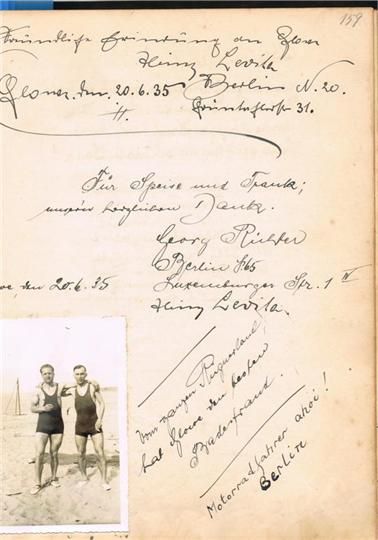 159
Freundliche Erinnerung an Glowe
Heinz Levita
Glowe, den 20.6.35 Berlin N.20.
31.
Für Speise und Trank;
unseren herzlichen Dank.
Georg Richter
Berlin N65
den 20.6.35 Luxemburger Str. 1 IV
Heinz Levita.
Vom ganzen Rügenerland,
hat Glowe den besten
Badestrand.
Motorradfahrer ahoi!
Berlin